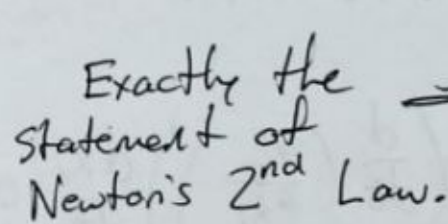 Exactly the
statement of
Newton's 2nd Law.